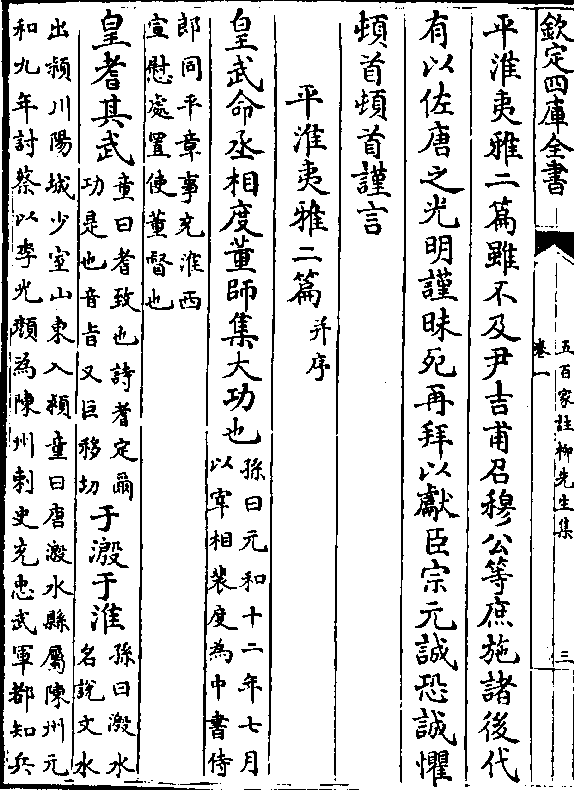 欽定四庫全書
五百家註柳先生集
卷一
三
平淮夷雅二篇雖不及尹吉甫召穆公等庶施諸後代
有以佐唐之光明謹昧死再拜以獻臣宗元誠恐誠懼
頓首頓首謹言
平淮夷雅二篇并序
皇武命丞相度董師集大功也孫曰元和十二年七月
以宰相裴度為中書侍
郎同平章事充淮西
宣慰處置使董督也
皇耆其武童曰耆致也詩耆定爾
功是也音㫖又巨移切
于溵于淮孫曰溵水
名說文水
出潁川陽城少室山東入潁童曰唐溵水縣屬陳州元
和九年討蔡以李光顔為陳州刺史充忠武軍都知兵